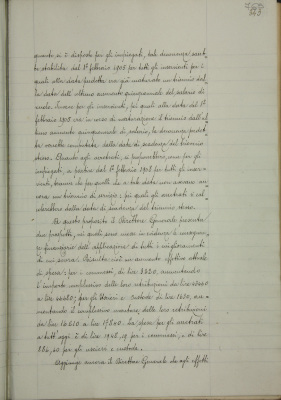 quanto si è disposto per gli impiegati, tale decorrenza sarebbe
stabilita dal 1° febbraio 1908 per tutti gli inservienti per i
quali alla data predetta era già maturato un biennio dalla
data dell'ultimo aumento quinquennale del salario di
ruolo. Invece per gli inservienti, pei quali alla data del 1°
febbraio 1908 era in corso di maturazione il biennio dall'ultimo
aumento quinquennale di salario, la decorrenza predetta
verrebbe computata dalla data di scadenza del biennio
stesso. Quanto agli arretrati, si proporrebbero, come per gli
impiegati, a partire dal 1° febbraio 1908 per tutti gli inservienti,
tranne che per quelli che a tale data non avevano ancora
un biennio di servizio: pei quali gli arretrati si calcolerebbero
dalla data di scadenza del biennio stesso.
A questo proposito il Direttore Generale presenta
due prospetti, nei quali sono messe in evidenza le conseguenze
finanziarie dell'applicazione di tutti i miglioramenti
di cui sopra. Risulta così un aumento effettivo attuale
di spesa: per i commessi, di lire 2820, aumentando
l'importo complessivo delle loro retribuzioni da lire
a lire; per gli Uscieri e custode di lire 1630, aumentando
il complessivo montare delle loro retribuzioni
da lire 16210 a lire 17840. La spesa per gli arretrati
a tutt'oggi è di lire per i commessi, e di lire
per gli uscieri e custode.
Aggiunge ancora il Direttore Generale che agli effetti